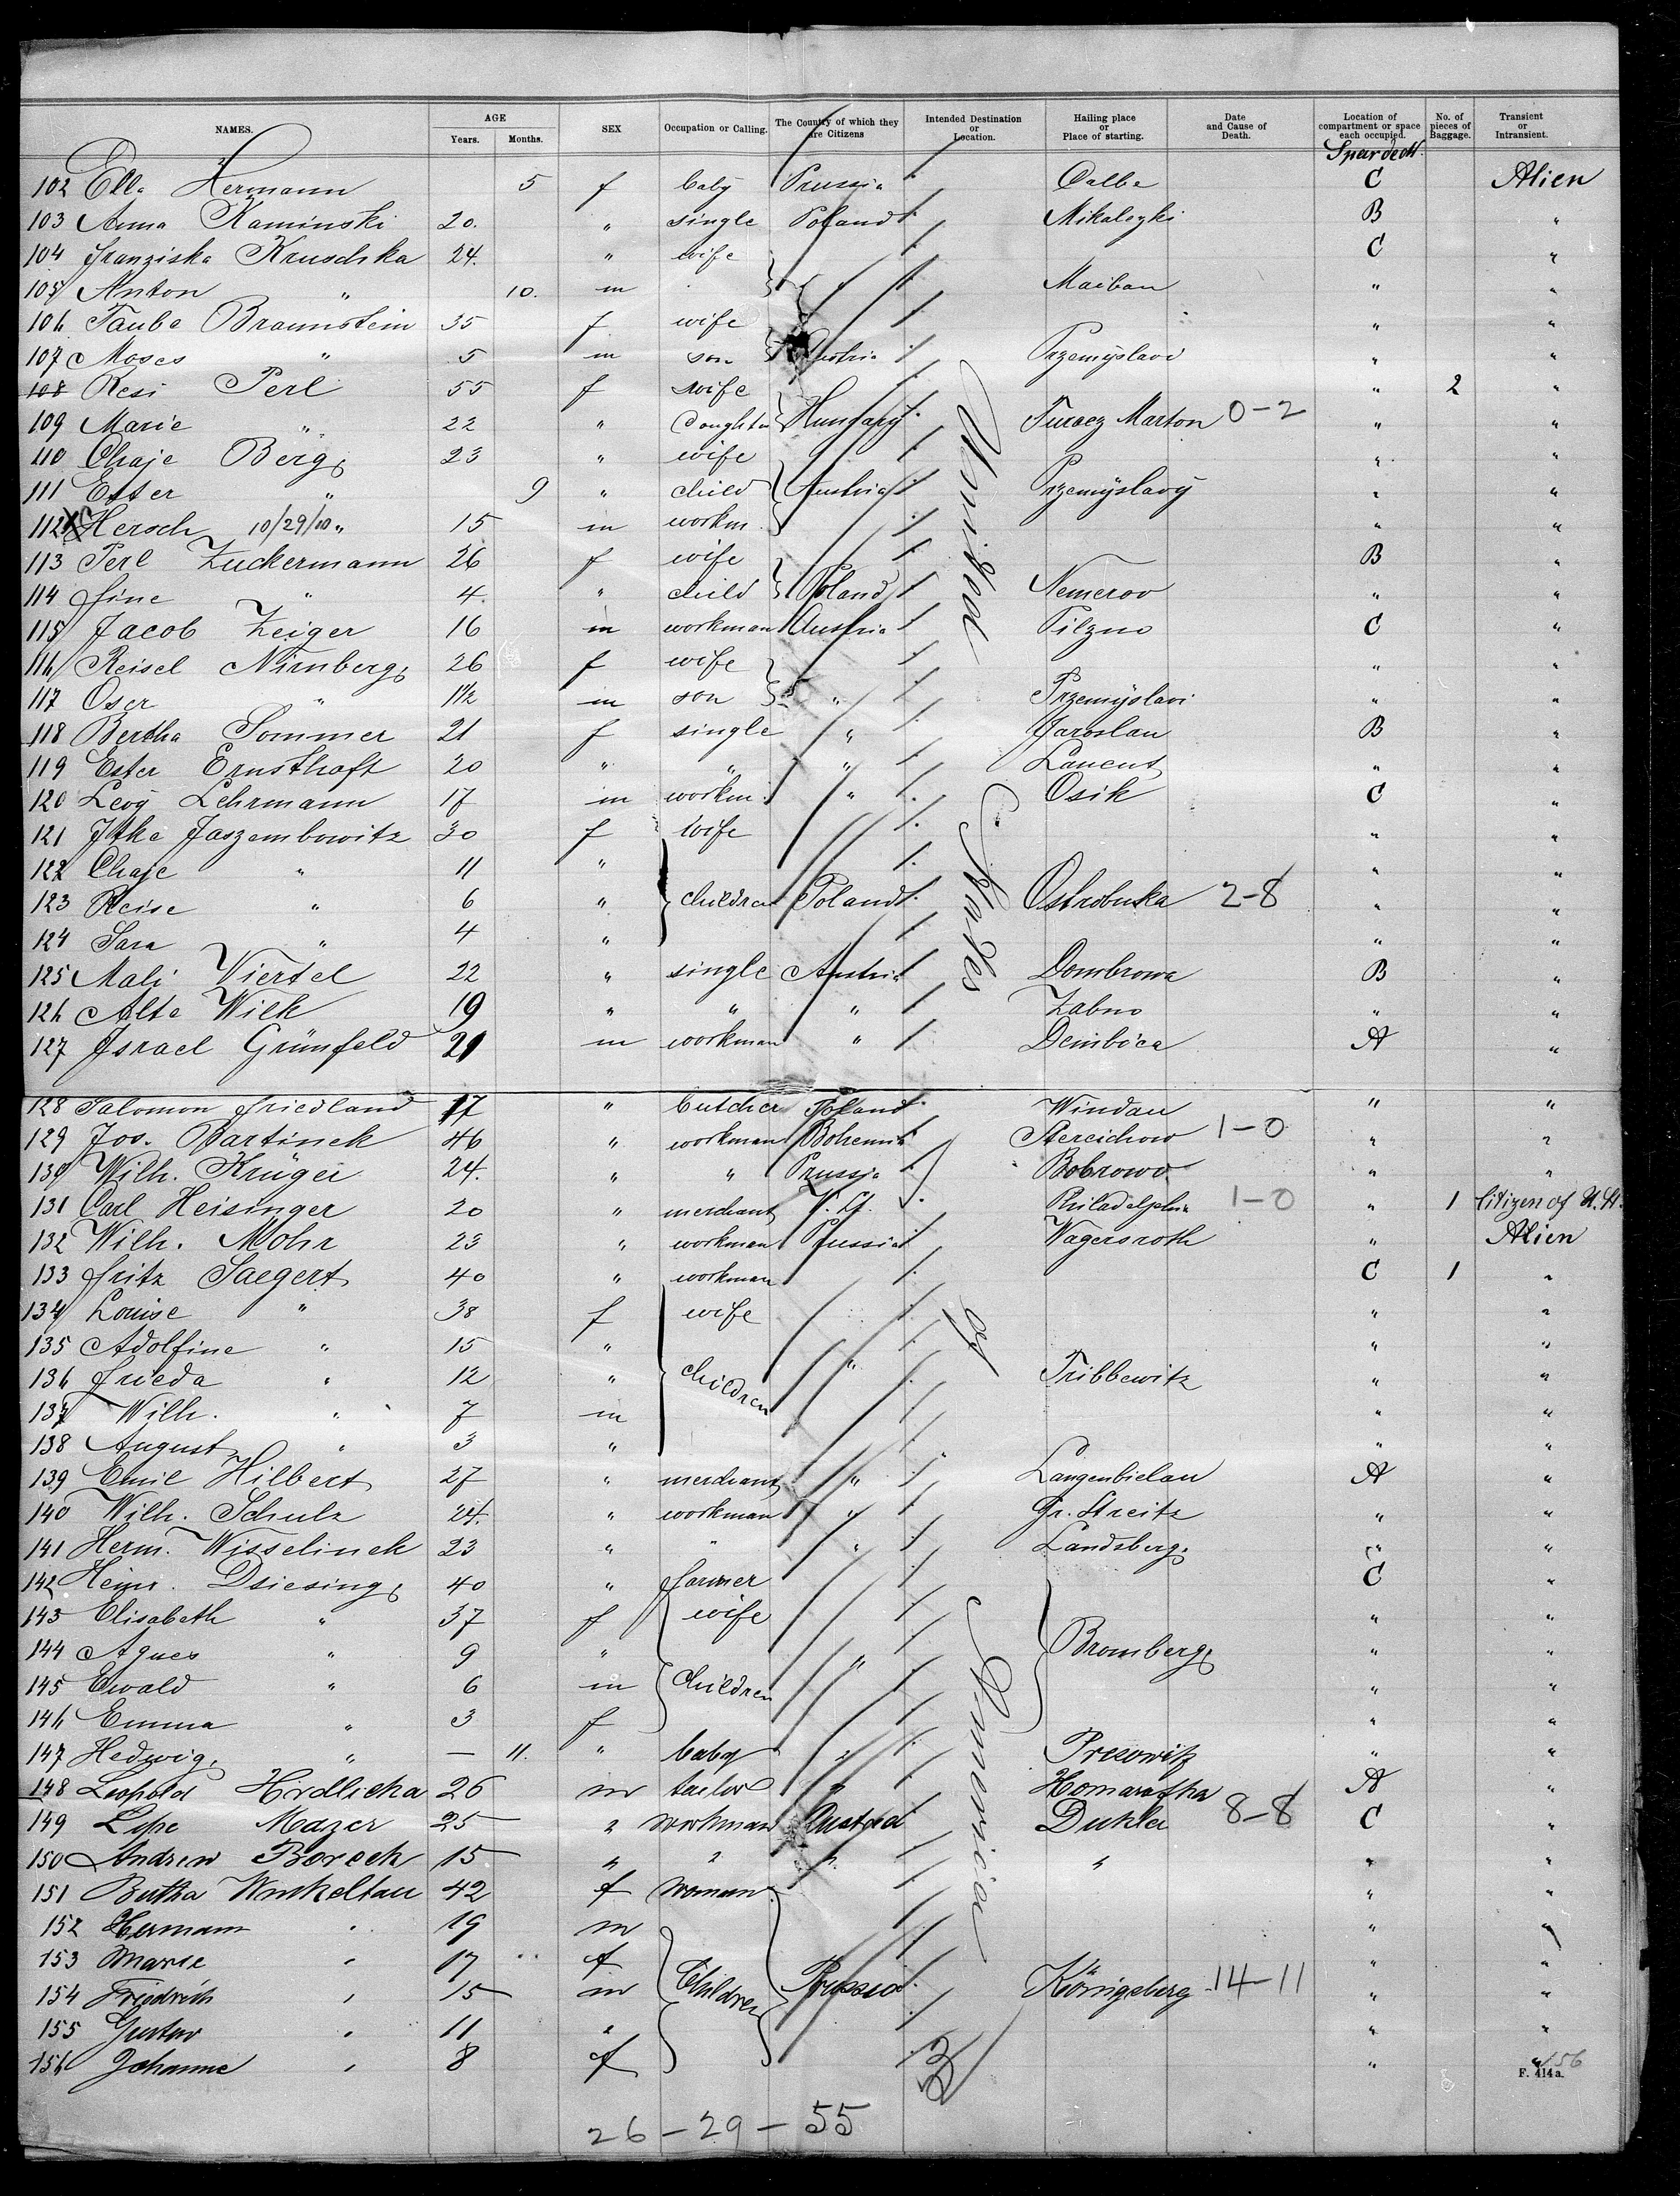 NAMES. AGE Years. Months. SEX Occupation or Calling. The Country of which they are Citizens Intended Destination or Location. Hailing place or Place of starting. Date and Cause of Death. Location of compartment or space each occupied. No. of pieces of Baggage. Transient or Intransient.
Spardeck.
102 Ella Hermann 5 f baby Prussia Calbe C Alien
103 Anna Kaminski 20. " single Poland Mikalezki B "
104 Franziska Kruschka 24. " wife C "
105 Anton " 10. m " Maiban " "
106 Taube Braunstein 35 f wife " "
107 Moses " 5 m son Austria Przemyslavi " "
108 Resi Perl 55 f wife " 2 "
109 Marie " 22 " Doughter Hungary Turocz Marton 0-2 " "
110 Chaje Berg 23 " wife " "
111 Ester " 9 " child Austria Przemyslavy " "
112 Hersch 10/29/10 " 15 m workm. " "
113 Perl Zuckermann 26 f wife B "
114 Fine " 4. " child Poland Nemerov " "
115 Jacob Zeiger 16 m workman Austria Pilzno C "
116 Reisel Nirnberg 26 f wife " "
117 Oser " 1 1/2 m son " Przemyslavi " "
118 Bertha Sommer 21 f single " Jaroslau B "
119 Ester Ernsthaft 20 " " " Lancut " "
120 Levy Lehrmann 17 m workm. " Osik C "
121 Itke Jaszembowitz 30 f wife " "
122 Chaje " 11 " " "
123 Reise " 6 " children Poland Ostrobuka 2-8 " "
124 Sara " 4 " " "
125 Mali Viertel 22 " single Austria Dombrowa B "
126 Alte Wilk 19 " " " Zabno " "
127 Israel Grünfeld 21 m workman " Dembica A "
128 Salomon Friedland 17 " butcher Poland Windau " "
129 Jos. Bartinek 46 " workman Bohemia Stercichow 1-0 " "
130 Wilh. Krüger 24. " " Prussia Bobrowo " "
131 Carl Heisinger 20 " merchant U. St. Philadelphia 1-0 " 1 Citizen of U. St.
132 Wilh. Mohr 23 " workman Prussia Wagersroth " Alien
133 Fritz Saegert 40 " workman C 1 "
134 Louise " 38 f wife " "
135 Adolfine " 15 " " "
136 Frieda " 12 " children " Tribbewitz " "
137 Wilh. " 7 m " "
138 August " 3 " " "
139 Emil Hilbert 27 " merchant " Langenbielau A "
140 Wilh. Schulz 24. " workman " Gr. Streitz " "
141 Herm. Wisselinck 23 " " " Landsberg " "
142 Heinr. Dsiesing 40 " farmer C "
143 Elisabeth " 37 f wife " "
144 Agnes " 9 " " Bromberg " "
145 Ewald " 6 m children " "
146 Emma " 3 f " "
147 Hedwig " — 11. " baby " Prezowitz " "
148 Leopold Hrdlicka 26 m tailor " Homaratka A "
149 Lipe Mazer 25 " workman Austria Dukla 8-8 C "
150 Andrew Boreck 15 " " " " " "
151 Bertha Winkeltau 42 f woman " "
152 Hermann " 19 m " "
153 Marie " 17 f " "
154 Friedrich " 15 m Children Prussia Königsberg 14-11 " "
155 Gustav " 11 " " "
156 Johanne " 8 f " "
United States of America
156
F. 414a.
26-29-55